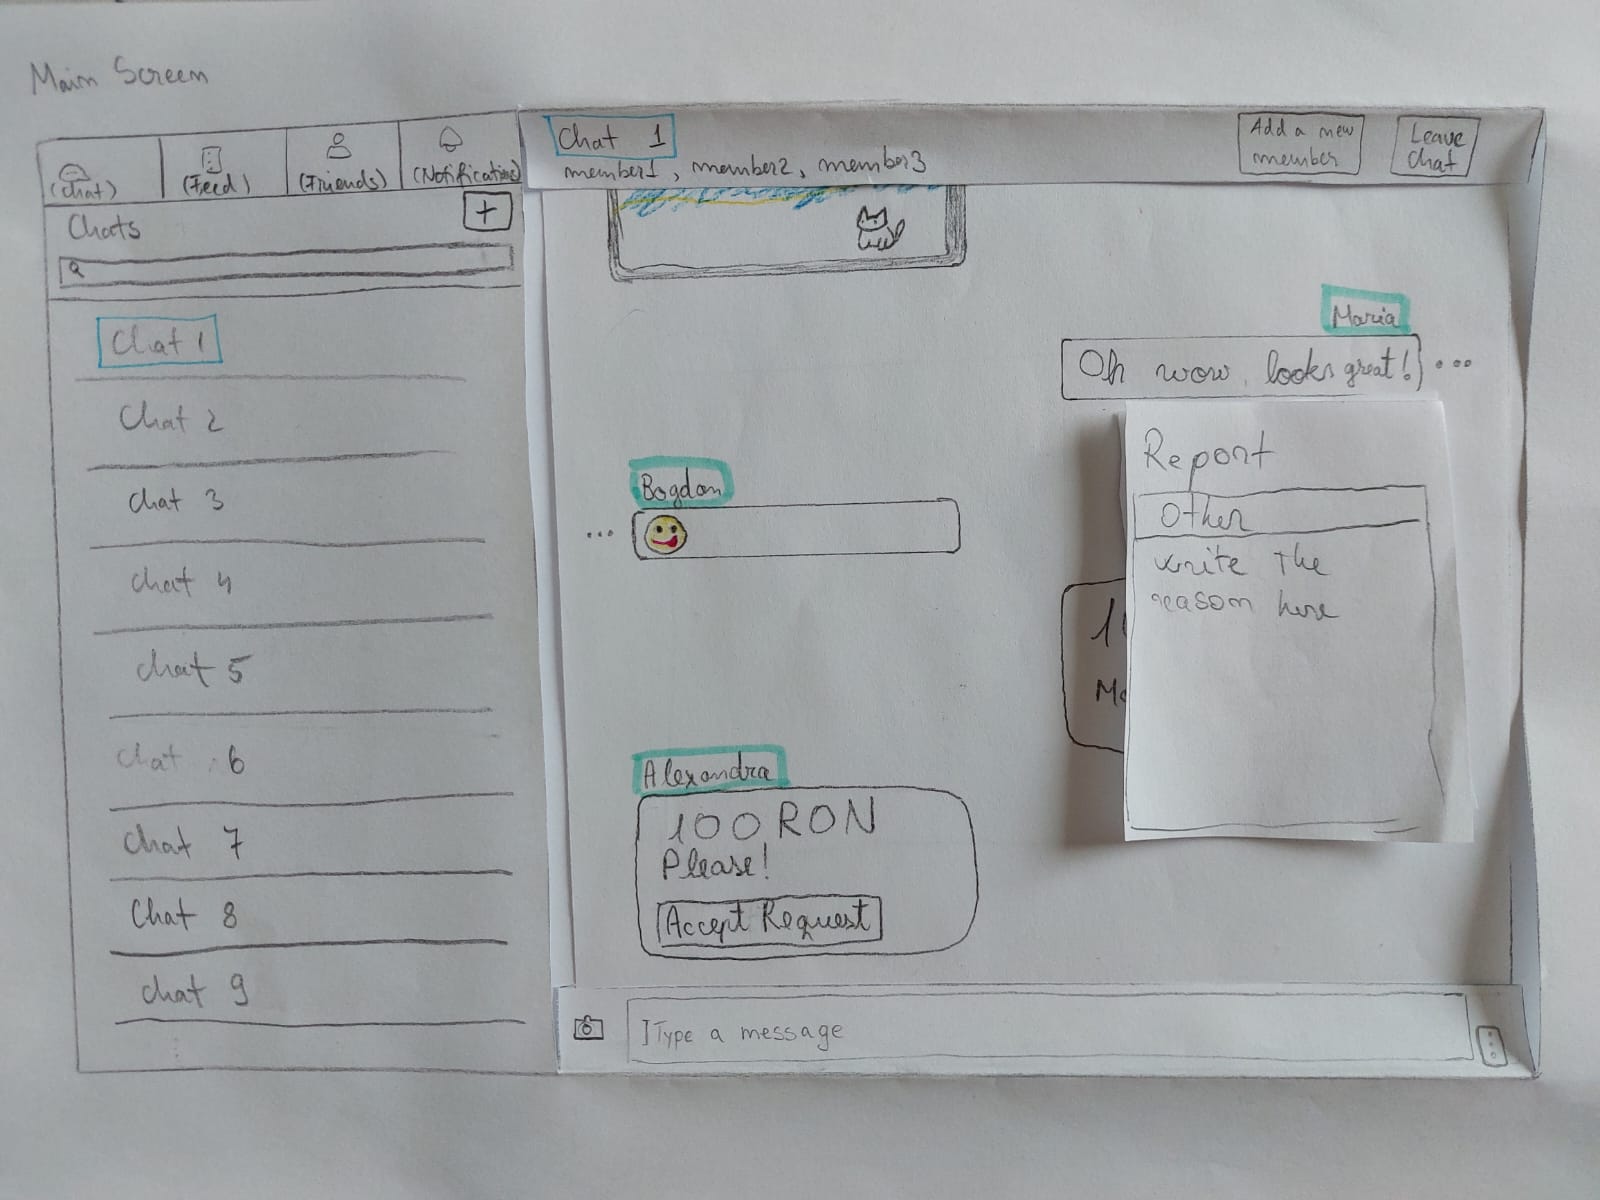 Main Screen
(Chat)
(Feed)
(Friends)
(Notifications)
Chats
+
Chat 1
Chat 2
Chat 3
Chat 4
Chat 5
Chat 6
Chat 7
Chat 8
Chat 9
Chat 1
member1, member2, member3
Add a new
member
Leave
chat
Maria
Oh wow, looks great!
...
Report
Other
write the
reason here
Bogdan
...
Alexandra
100 RON
Please!
Accept Request
Type a message